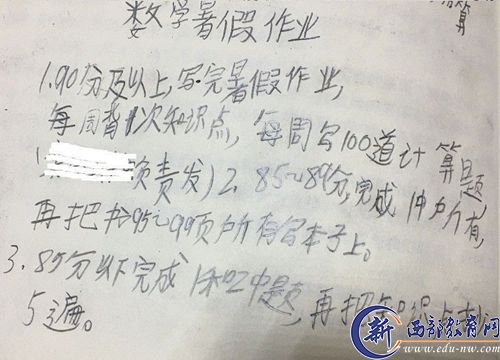 数学暑假作业
1.90分及以上,写完暑假作业,
每周背1次知识点,每周写100道计算题
负责发)2.85~89分,完成1中所有,
再把书95~99页所有写本子上。
3.85分以下完成1和2中题,再把知识点抄
5遍。
算
新 西部教育网
www.edu-nw.com